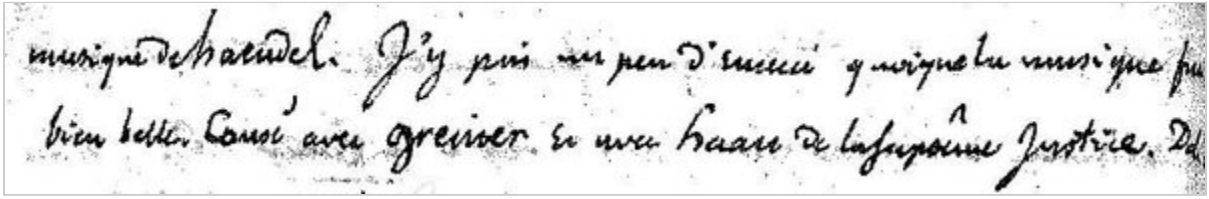 musique de haendel. J'y pris un peu d'ennui quoique la musique fu
bien belle. Causé avec Greiner et avec haan de la Suprême Justice. Da